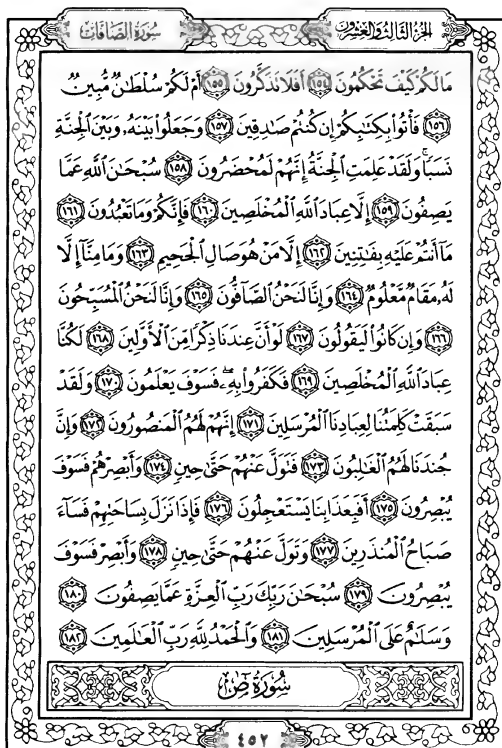 سُورَةُ الصَّافَّاتِ
الجُزْءُ الثَّالِثُ وَالعِشْرُونَ
مَا لَكُمْ كَيْفَ تَحْكُمُونَ ١٥٤ أَفَلَا تَذَكَّرُونَ ١٥٥ أَمْ لَكُمْ سُلْطَانٌ مُّبِينٌ
١٥٦ فَأْتُوا بِكِتَابِكُمْ إِن كُنتُمْ صَادِقِينَ ١٥٧ وَجَعَلُوا بَيْنَهُ وَبَيْنَ الْجِنَّةِ
نَسَبًا وَلَقَدْ عَلِمَتِ الْجِنَّةُ إِنَّهُمْ لَمُحْضَرُونَ ١٥٨ سُبْحَانَ اللَّهِ عَمَّا
يَصِفُونَ ١٥٩ إِلَّا عِبَادَ اللَّهِ الْمُخْلَصِينَ ١٦٠ فَإِنَّكُمْ وَمَا تَعْبُدُونَ ١٦١
مَا أَنتُمْ عَلَيْهِ بِفَاتِنِينَ ١٦٢ إِلَّا مَنْ هُوَ صَالِ الْجَحِيمِ ١٦٣ وَمَا مِنَّا إِلَّا
لَهُ مَقَامٌ مَّعْلُومٌ ١٦٤ وَإِنَّا لَنَحْنُ الصَّافُّونَ ١٦٥ وَإِنَّا لَنَحْنُ الْمُسَبِّحُونَ
١٦٦ وَإِن كَانُوا لَيَقُولُونَ ١٦٧ لَوْ أَنَّ عِندَنَا ذِكْرًا مِّنَ الْأَوَّلِينَ ١٦٨ لَكُنَّا
عِبَادَ اللَّهِ الْمُخْلَصِينَ ١٦٩ فَكَفَرُوا بِهِ فَسَوْفَ يَعْلَمُونَ ١٧٠ وَلَقَدْ
سَبَقَتْ كَلِمَتُنَا لِعِبَادِنَا الْمُرْسَلِينَ ١٧١ إِنَّهُمْ لَهُمُ الْمَنصُورُونَ ١٧٢ وَإِنَّ
جُندَنَا لَهُمُ الْغَالِبُونَ ١٧٣ فَتَوَلَّ عَنْهُمْ حَتَّىٰ حِينٍ ١٧٤ وَأَبْصِرْهُمْ فَسَوْفَ
يُبْصِرُونَ ١٧٥ أَفَبِعَذَابِنَا يَسْتَعْجِلُونَ ١٧٦ فَإِذَا نَزَلَ بِسَاحَتِهِمْ فَسَاءَ
صَبَاحُ الْمُنذَرِينَ ١٧٧ وَتَوَلَّ عَنْهُمْ حَتَّىٰ حِينٍ ١٧٨ وَأَبْصِرْ فَسَوْفَ
يُبْصِرُونَ ١٧٩ سُبْحَانَ رَبِّكَ رَبِّ الْعِزَّةِ عَمَّا يَصِفُونَ ١٨٠
وَسَلَامٌ عَلَى الْمُرْسَلِينَ ١٨١ وَالْحَمْدُ لِلَّهِ رَبِّ الْعَالَمِينَ ١٨٢
سُورَةُ صٓ
٤٥٢